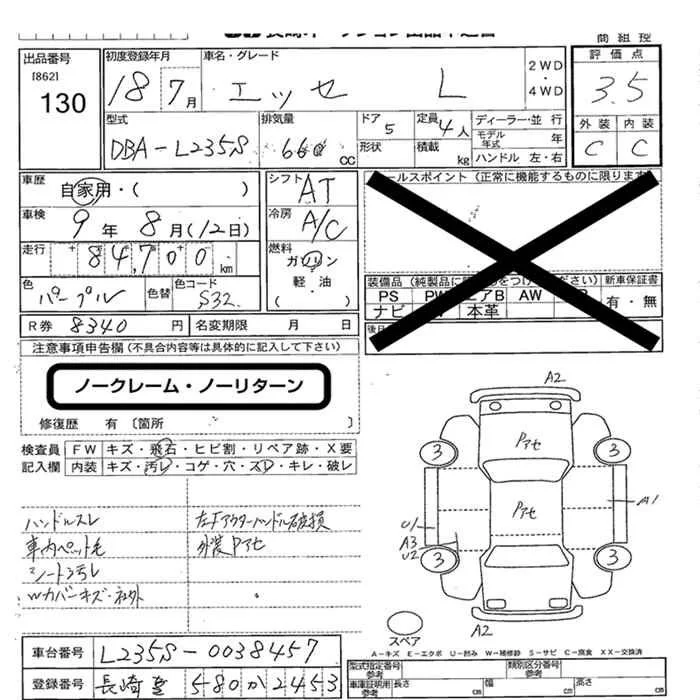 出品番号
[862]
130
初度登録年月
18 7月
車名・グレード
エッセ L
2WD・4WD
評価点
3.5
型式
DBA-L235S
排気量
660 cc
ドア 5
形状
定員 4人
積載 kg
ディーラー・並行
モデル年式 年
ハンドル 左・右
外装 内装
C C
車歴
自家用・( )
車検
9年 8月(12日)
走行
84,700 km
色
パープル
色替
色コード
S32
シフト AT
冷房 A/C
燃料
ガソリン
軽油
( )
ールスポイント(正常に機能するものに限ります
装備品(純製品に をつけ ください) 新車保証書
PS PW エアB AW
ナビ 本革
有・無
R券 8340円 名変期限 月 日
後日
注意事項申告欄(不具合内容等は具体的に記入して下さい)
ノークレーム・ノーリターン
修復歴 有〔箇所 〕
検査員 FW キズ・飛石・ヒビ割・リペア跡・X要
記入欄 内装 キズ・汚レ・コゲ・穴・スレ・キレ・破レ
ハンドルスレ 左Fアウターハンドル破損
車内ペット毛 外装Pアセ
シート汚レ
A2
Pアセ
3 3
Pアセ
A1
U1
A3
U2
3 3
A2
スペア
A-キズ E-エクボ U-凹み W-補修跡 S-サビ C-腐食 XX-交換済
車台番号 L235S-0038457
登録番号 長崎 580 か 2453
型式指定番号 参考
類別区分番号 参考
車庫証明用 参考 長さ cm 幅 cm 高さ cm